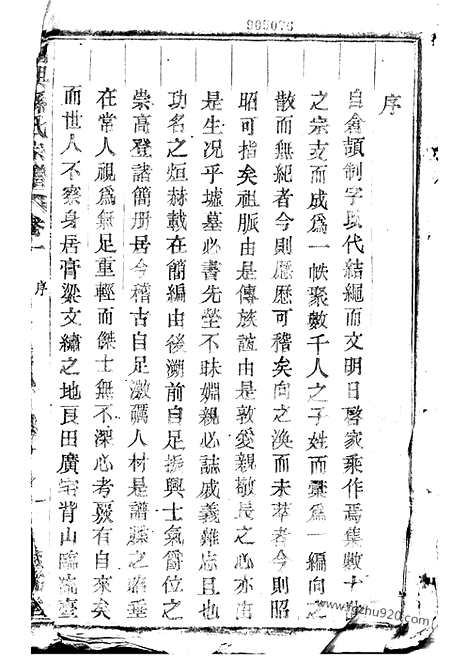 999076
序
自倉頡制字以代結繩而文明日啓家乘作焉集數十世
之宗支而成爲一帙聚數千人之子姓而彙爲一編向之
散而無紀者今則歷歷可稽矣向之渙而未萃者今則昭
昭可指矣祖脈由是傳族誼由是敦愛親敬長之心亦由
是生况乎墳墓必書先塋不昧婣親必誌戚義難忘且也
功名之烜赫載在簡編由後溯前自足振興士氣爵位之
崇高登諸簡册居今稽古自足激礪人材是譜牒之昭垂
在常人視爲無足重輕而傑士無不深必考覈有自來矣
而世人不察身居膏粱文繡之地良田廣宅背山臨流臺
孫氏宗譜 卷一 序